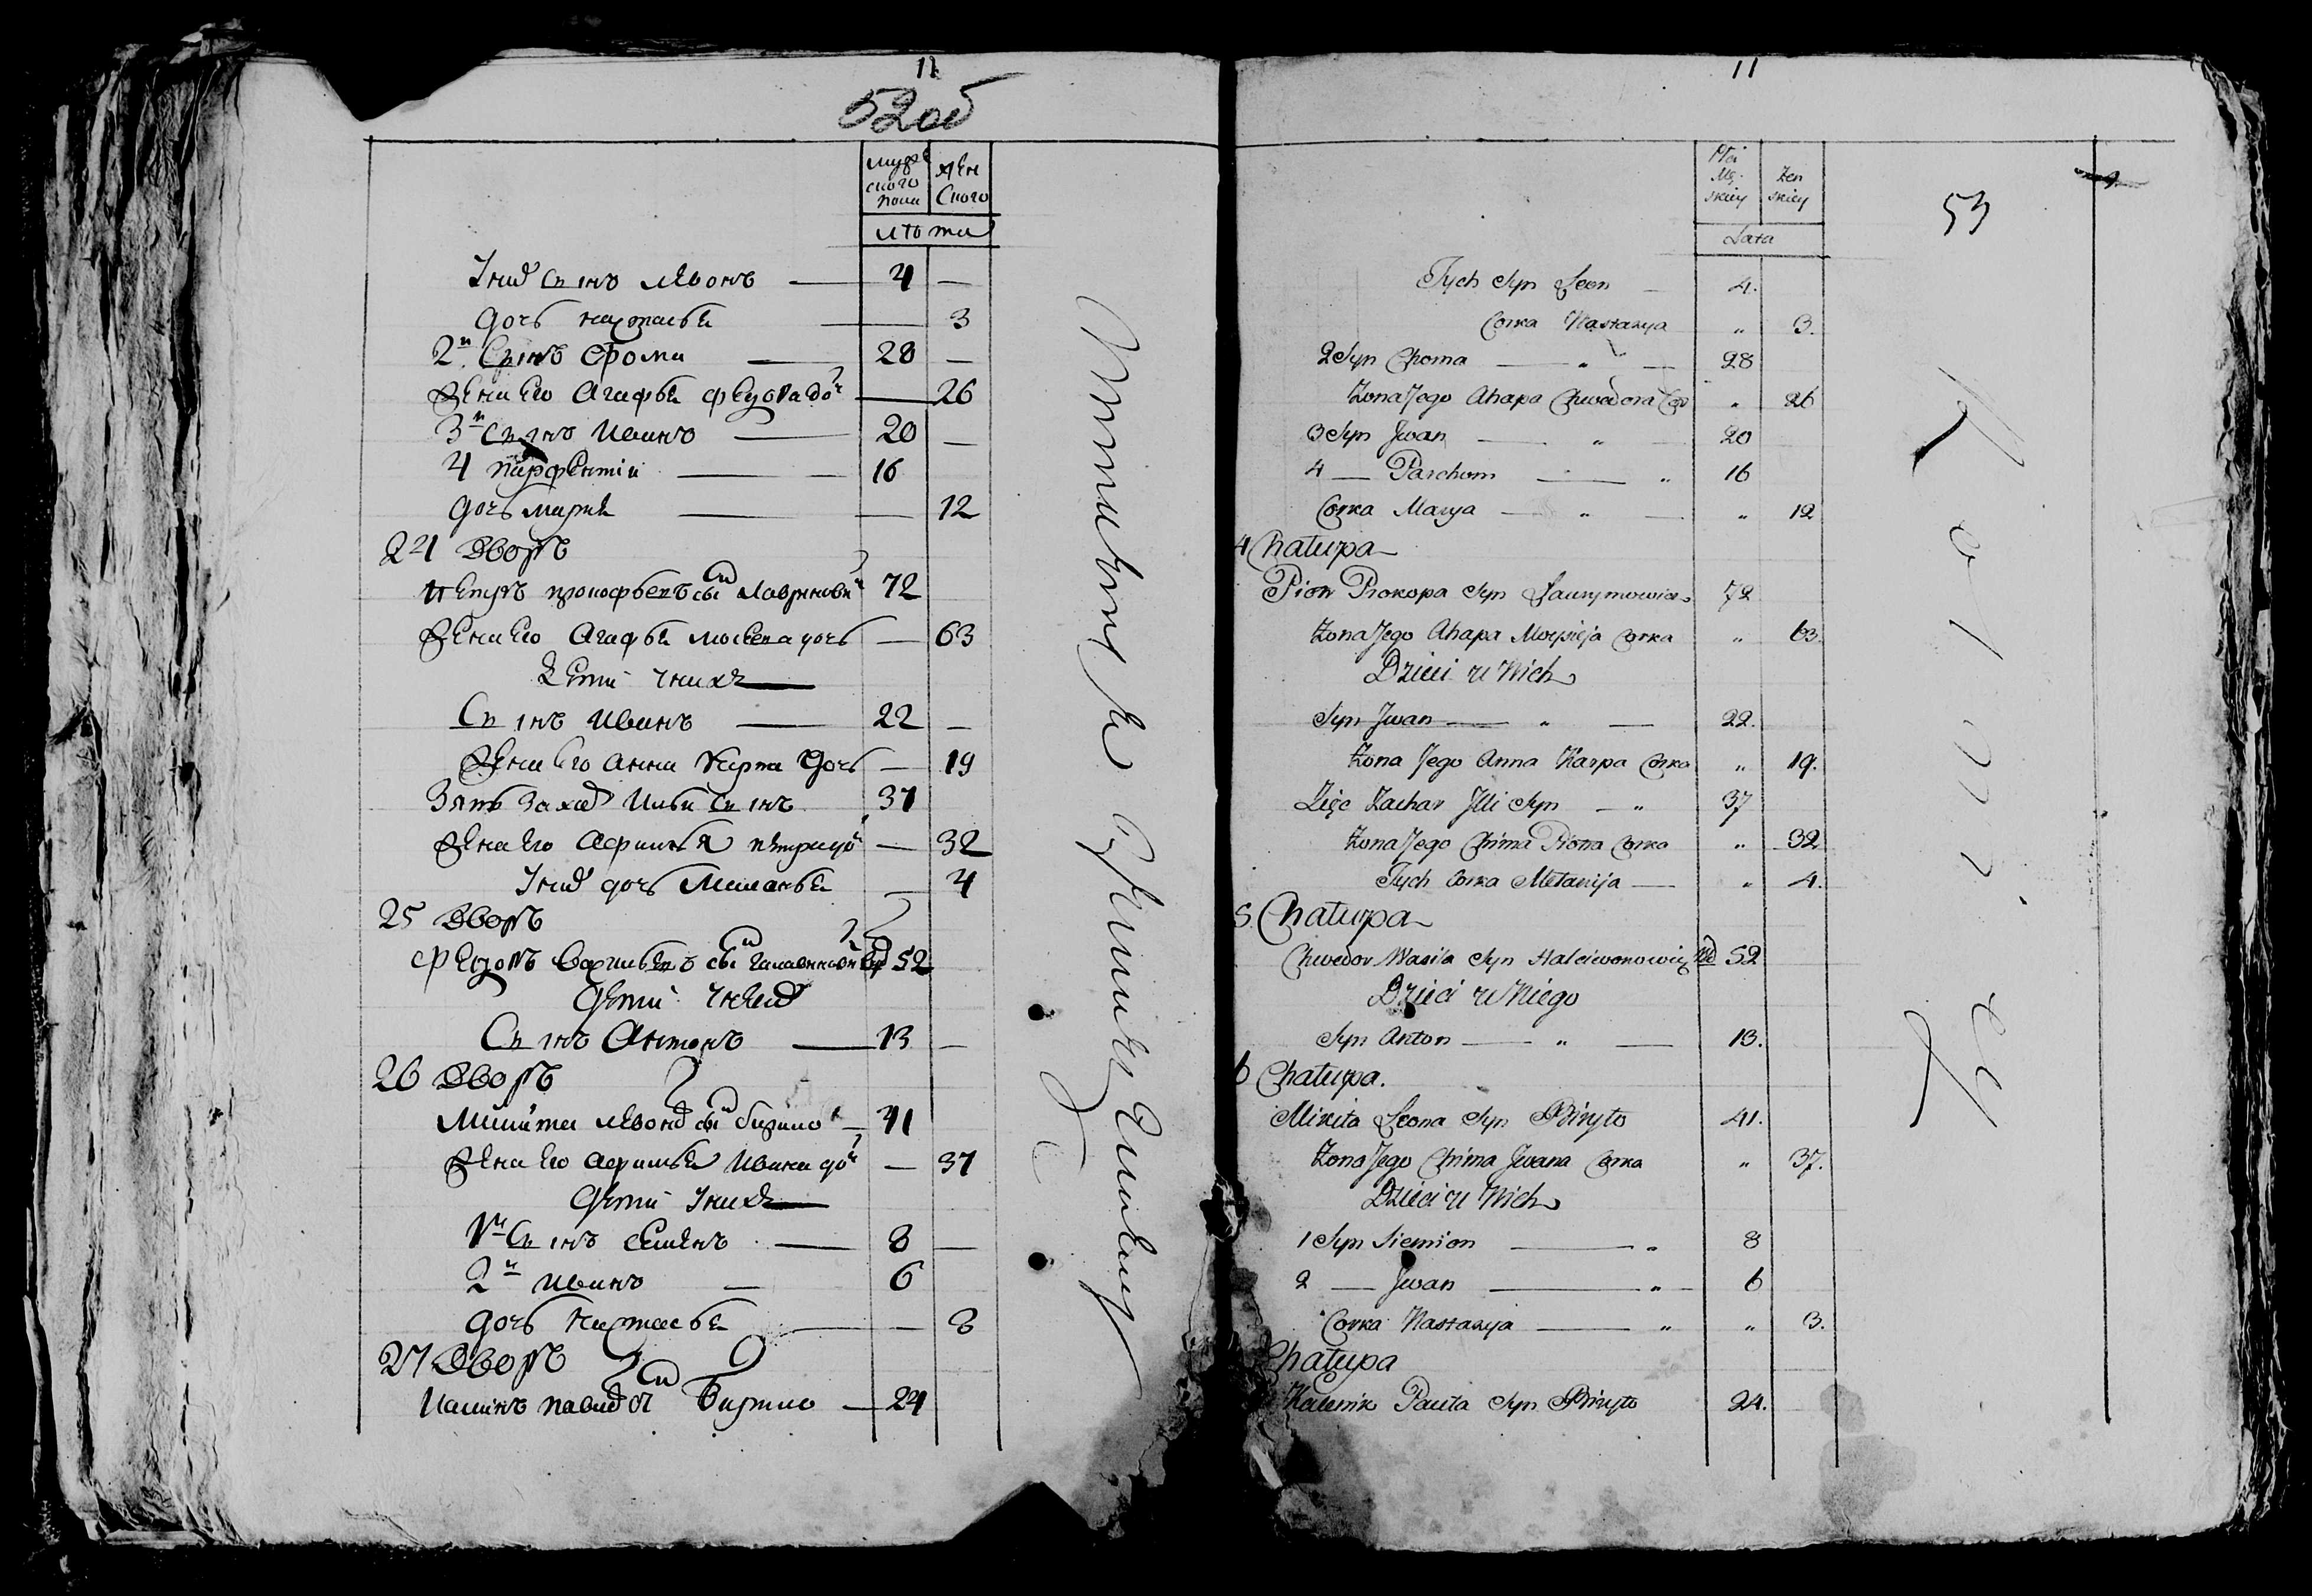 11
52 об
мужеского пола
женского
лѣта
У нихъ сынъ Леонъ — 4 —
дочь Настасья — 3
2й Сынъ Фома — 28 —
Жена его Агафья Федора доч — 26
3й Сынъ Иванъ — 20 —
4 Парфентій — 16
дочь Марья — 12
24 Дворъ
Петръ Прокофьевъ сынъ Лавринови 72
Жена его Агафья Мосея дочь — 63
Дети у нихъ
Сынъ Иванъ — 22 —
Жена его Анна Карпа дочь — 19
Зять Захар Ильи Сынъ 37
Жена его Афимья Петра до — 32
У них дочь Меланья — 4
25 Дворъ
Федоръ Васильевъ сы вд 52
Дети у него
Сынъ Антонъ — 13 —
26 Дворъ
Микита Леона сы Бирило — 41
Жена его Афимья Ивана до — 37
Дети у нихъ
1й Сынъ Семенъ — 8 —
2й Иванъ — 6
дочь Настасья — 3
27 Дворъ
Павла сы Бирило — 24
11
53
Płci Męskiey
Żenskiey
Lata
Tych Syn Leon — 4.
Corka Nastazya " 3.
2 Syn Choma — " — 28
Żona Jego Ahapa Chwedora Cor " 26
3 Syn Jwan — " — 20
4 — Parchom — " 16
Corka Marya — " — " 12
4 Chałupa
Piotr Prokopa Syn Ławrynowicz 72
Żona Jego Ahapa Moysieja Corka " 63.
Dzieci u Nich
Syn Jwan — " — 22.
Żona Jego Anna Karpa Corka " 19.
Zięć Zachar Jlli Syn — " 37
Żona Jego Chima Piotra Corka " 32
Tych Corka Mełanija — " 4.
5 Chałupa
Chwedor Wasila Syn Wd 52
Dzieci u Niego
Syn Anton — " — 13.
6 Chałupa.
Mikita Leona Syn Biryło 41.
Żona Jego Chima Jwana Corka " 37.
Dzieci u Nich
1 Syn Siemion — " 8
2 — Jwan — " — 6
Corka Nastazya — " " 3.
Chałupa
Kalenik Pauła Syn Biryło 24.